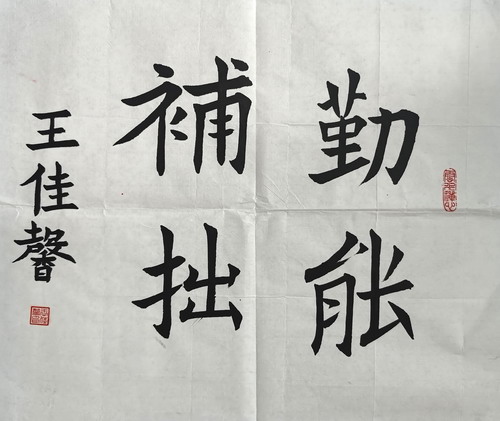 勤能
補拙
王佳馨